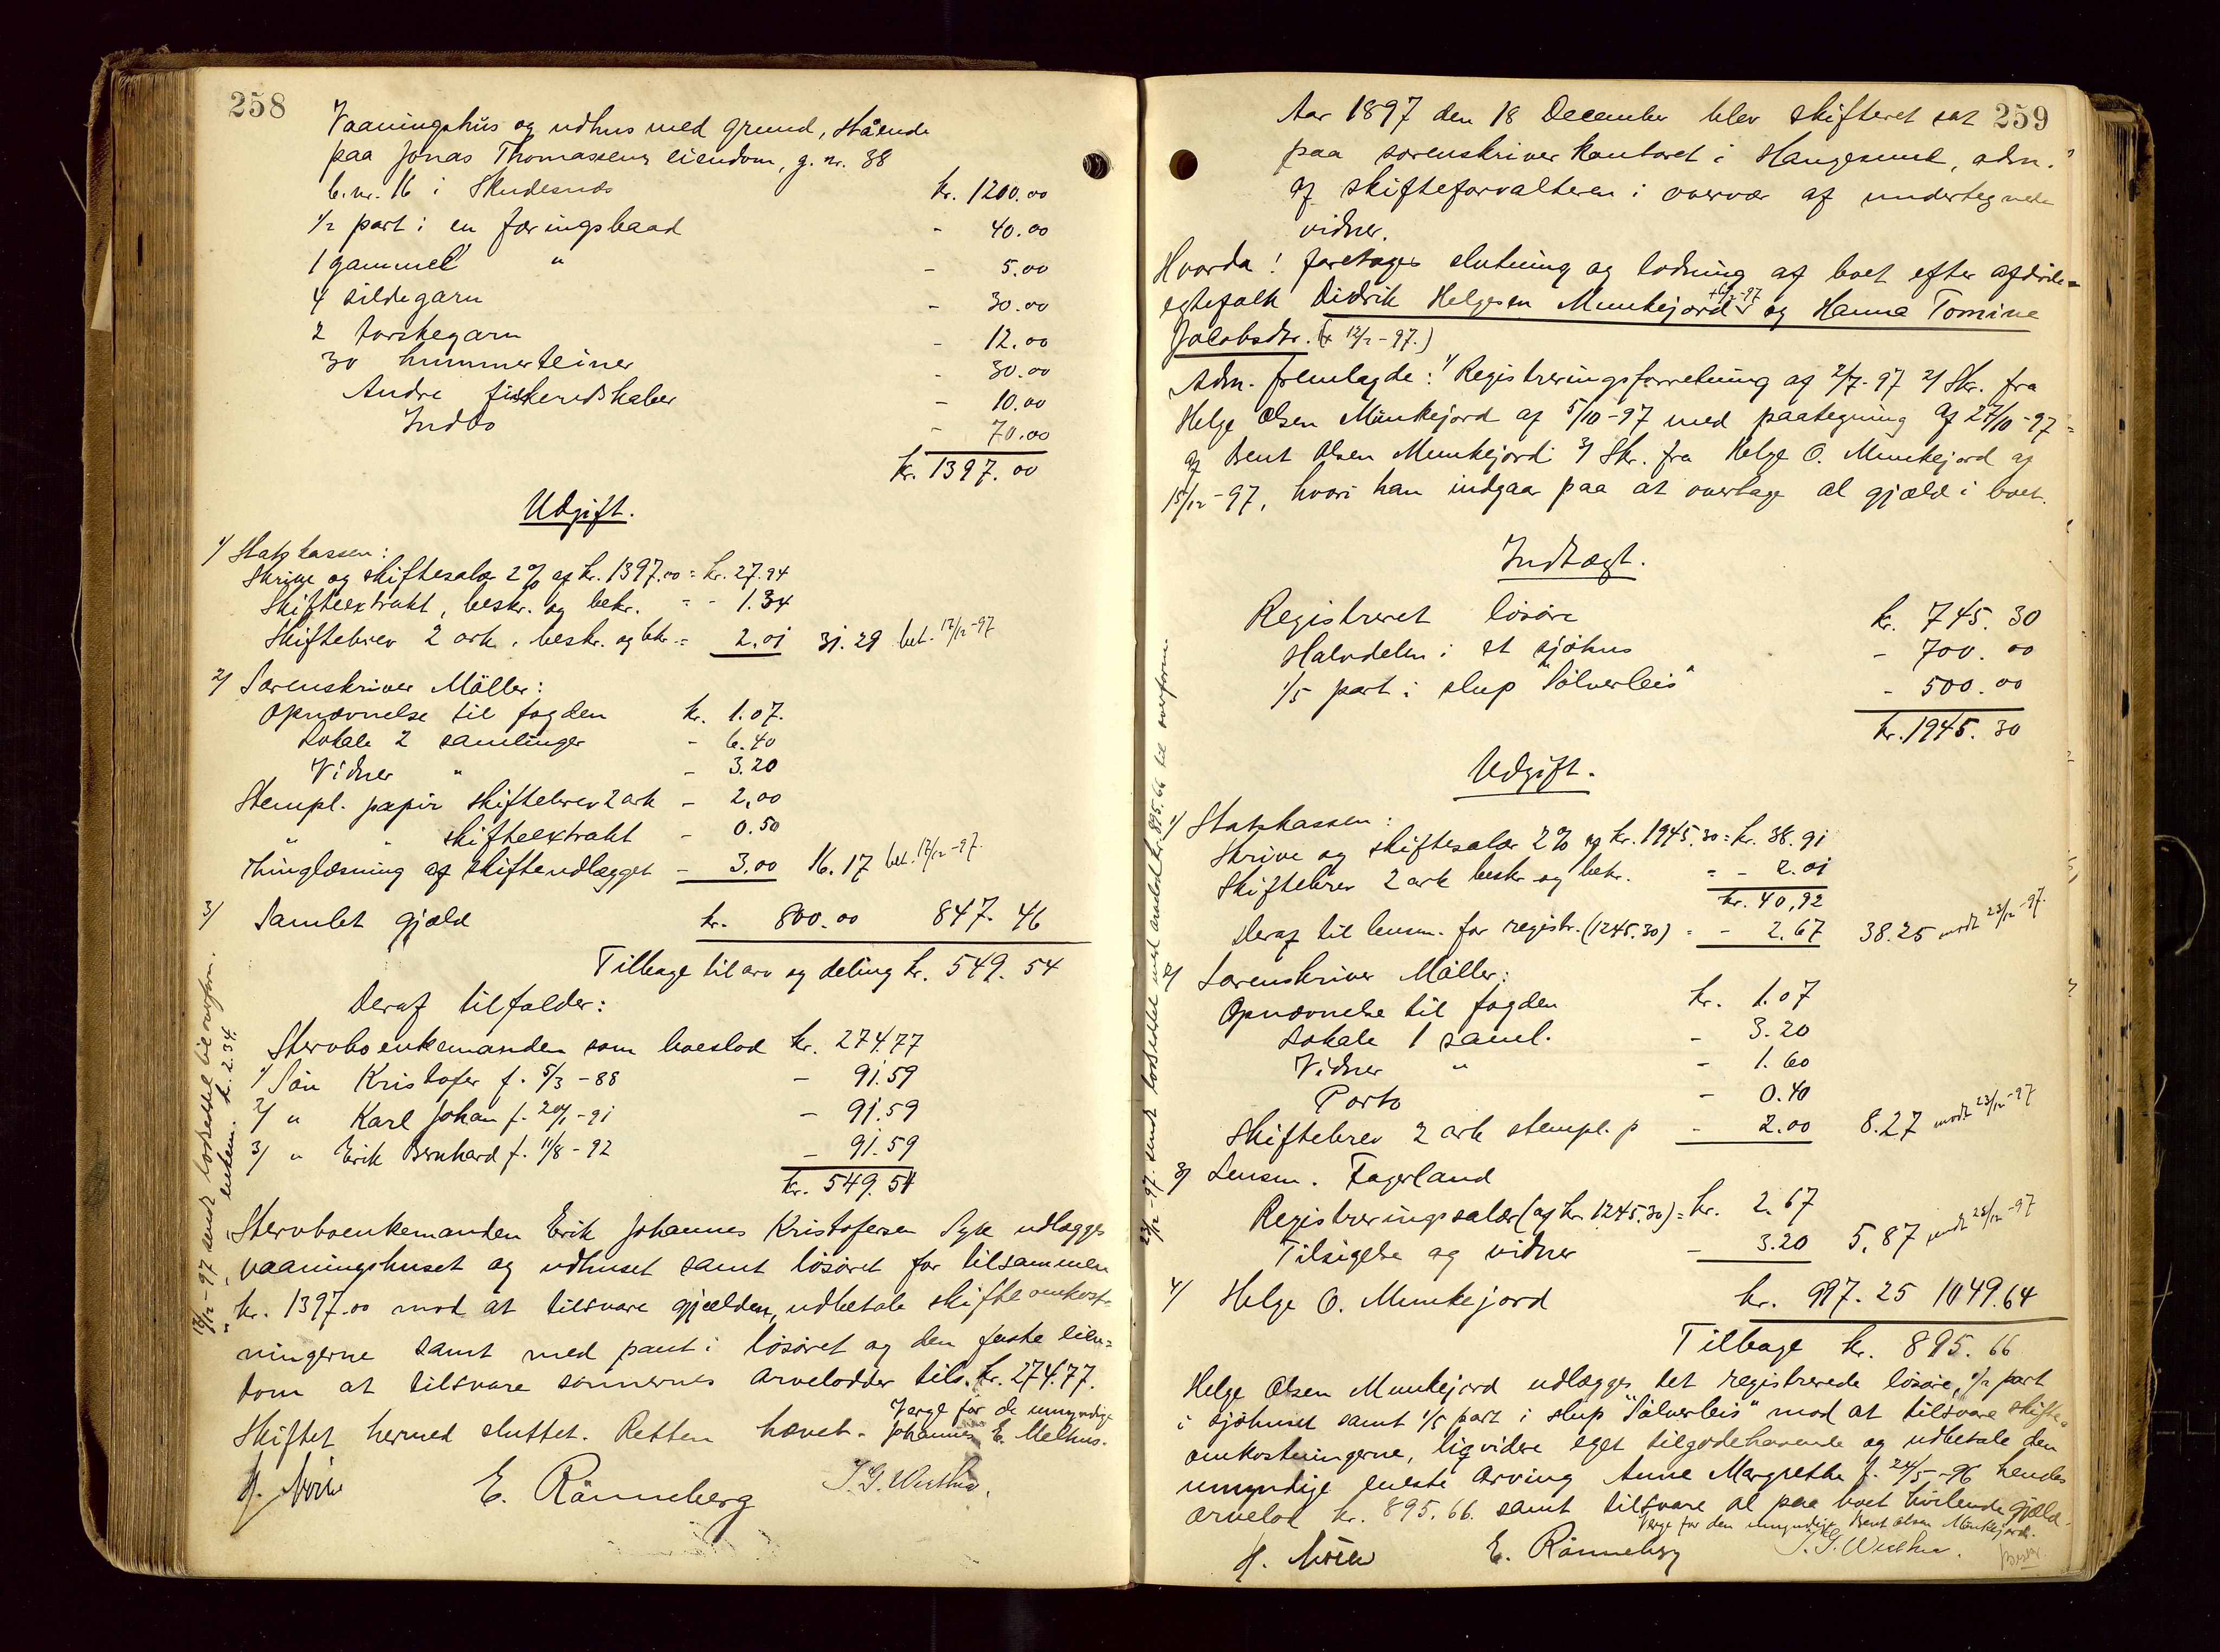 258
Vaaningshus og udhus med grund, stående
paa Jonas Thomassens eiendom, g. nr. 38
b. nr. 16 i Skudesnæs kr. 1200.00
1/2 part i en færingsbaad - 40.00
1 gammel " - 5.00
4 sildegarn - 30.00
2 torskegarn - 12.00
30 hummerteiner - 30.00
Andre fiskeredskaber - 10.00
Indbo - 70.00
kr. 1397.00
Udgift.
1/ Statskassen:
Skrive og skiftesalær 2% af kr. 1397.00 = kr. 27.94
Skifteextrakt, beskr. og bekr. = - 1.34
Skiftebrev 2 ark, beskr. og bekr. = 2.01 31.29 bet. 17/12-97
2/ Sorenskriver Möller:
Opnævnelse til fogden kr. 1.07.
Lokale 2 samlinger - 6.40
Vidner " - 3.20
Stempl. papir skiftebrev 2 ark - 2.00
" " skifteextrakt - 0.50
Thinglæsning af skifteudlægget - 3.00 16.17 bet. 17/12-97.
3/ Samlet gjæld kr. 800.00 847.46
Tilbage til arv og deling kr. 549.54
Deraf tilfalder:
Stervboenkemanden som boeslod kr. 274.77
1/ Sön Kristofer f. 5/3-88 - 91.59
2/ " Karl Johan f. 20/1-91 - 91.59
3/ " Erik Bernhard f. 11/8-92 - 91.59
kr. 549.54
Stervboenkemanden Erik Johannes Kristofersen Syre udlægges
vaaningshuset og udhuset samt lösöret for tilsammen
kr. 1397.00 mod at tilsvare gjælden, udbetale skifteomkost-
ningerne samt med pant i lösöret og den faste eien=
dom at tilsvare sönnernes arvelodder tils. kr. 274.77.
Skiftet hermed sluttet. Retten hævet. Verge for de umyndige
Johannes E. Melhus.
E. Rönneberg
17/12-97 sendt lodseddel til overform.
" - " enkem. kr. 2.34.
259
Aar 1897 den 18 December blev skifteret sat
paa sorenskriverkontoret i Haugesund, adm.
af skifteforvalteren i overvær af undertegnede
vidner.
Hvorda! foretoges slutning og lodning af boet efter afdöde
egtefolk Didrik Helgesen Munkejord og Hanna Tomine
Jacobsdtr. († 12/2-97.)
Adm. fremlagde: 1/ Registreringsforretning af 2/7-97 2/ Skr. fra
Helge Olsen Munkejord af 5/10-97 med paategning af 27/10-97
af Bent Olsen Munkejord: 3/ Skr. fra Helge O. Munkejord af
15/12-97, hvori han indgaar paa at overtage al gjæld i boet.
Indtægt.
Registreret lösöre kr. 745.30
Halvdelen i et sjöhus - 700.00
1/5 part i slup "Sölverleis" - 500.00
kr. 1945.30
Udgift.
1/ Statskassen:
Skrive og skiftesalær 2% af kr. 1945.30 = kr. 38.91
Skiftebrev 2 ark beskr. og bekr. = - 2.01
kr. 40.92
Deraf til lensm. for registr. (1245.30) = - 2.67 38.25 modt 23/12-97.
2/ Sorenskriver Möller:
Opnævnelse til fogden kr. 1.07
Lokale 1 saml. - 3.20
Vidner " - 1.60
Porto - 0.40
Skiftebrev 2 ark stempl. p - 2.00 8.27 modt 23/12-97
3/ Lensm. Fagerland
Registreringssalær (af kr. 1245.30) = kr. 2.67
Tilsigelse og vidner - 3.20 5.87 modt 23/12-97
4/ Helge O. Munkejord kr. 997.25 1049.64
Tilbage kr. 895.66
Helge Olsen Munkejord udlægges det registrerede lösöre, 1/2 part
i sjöhuset samt 1/5 part i slup "Sölverleis" mod at tilsvare skifte=
omkostningerne, liqvidere eget tilgodehavende og udbetale den
umyndige eneste arving Anne Margrethe f. 24/5-96 hendes
arvelod kr. 895.66. samt tilsvare al paa boet hvilende gjæld.
Verge for den umyndige Bent Olsen Munkejord.
E. Rönneberg
23/12-97 sendt lodseddel med arvelod kr. 895.66 til overform.